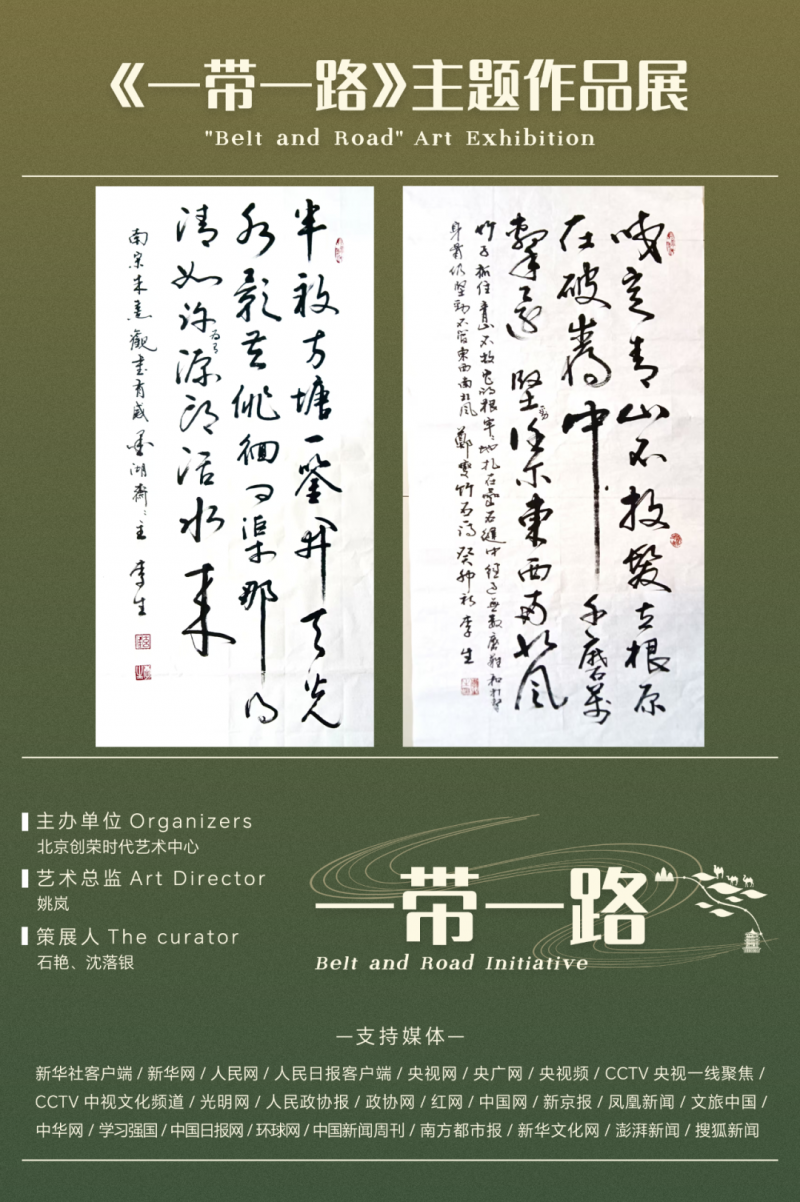 《一带一路》主题作品展
"Belt and Road" Art Exhibition
半畝方塘一鑒開天光
雲影共徘徊問渠那得
清如许为有源头活水来
南宋朱熹觀書有感 湖齋主 李生
咬定青山不放鬆立根原
在破巖中千磨萬
擊還堅勁任尔東西南北風
竹子抓住青山不放它的根牢牢地扎在岩石缝中经过无数磨难和打擊
身骨仍堅勁不管東西南北风 鄭燮竹石詩 癸卯秋 李生
主办单位 Organizers
北京创荣时代艺术中心
艺术总监 Art Director
姚岚
策展人 The curator
石艳、沈落银
一带一路
Belt and Road Initiative
—支持媒体—
新华社客户端 / 新华网 / 人民网 / 人民日报客户端 / 央视网 / 央广网 / 央视频 / CCTV 央视一线聚焦 /
CCTV 中视文化频道 / 光明网 / 人民政协报 / 政协网 / 红网 / 中国网 / 新京报 / 凤凰新闻 / 文旅中国 /
中华网 / 学习强国 / 中国日报网 / 环球网 / 中国新闻周刊 / 南方都市报 / 新华文化网 / 澎湃新闻 / 搜狐新闻